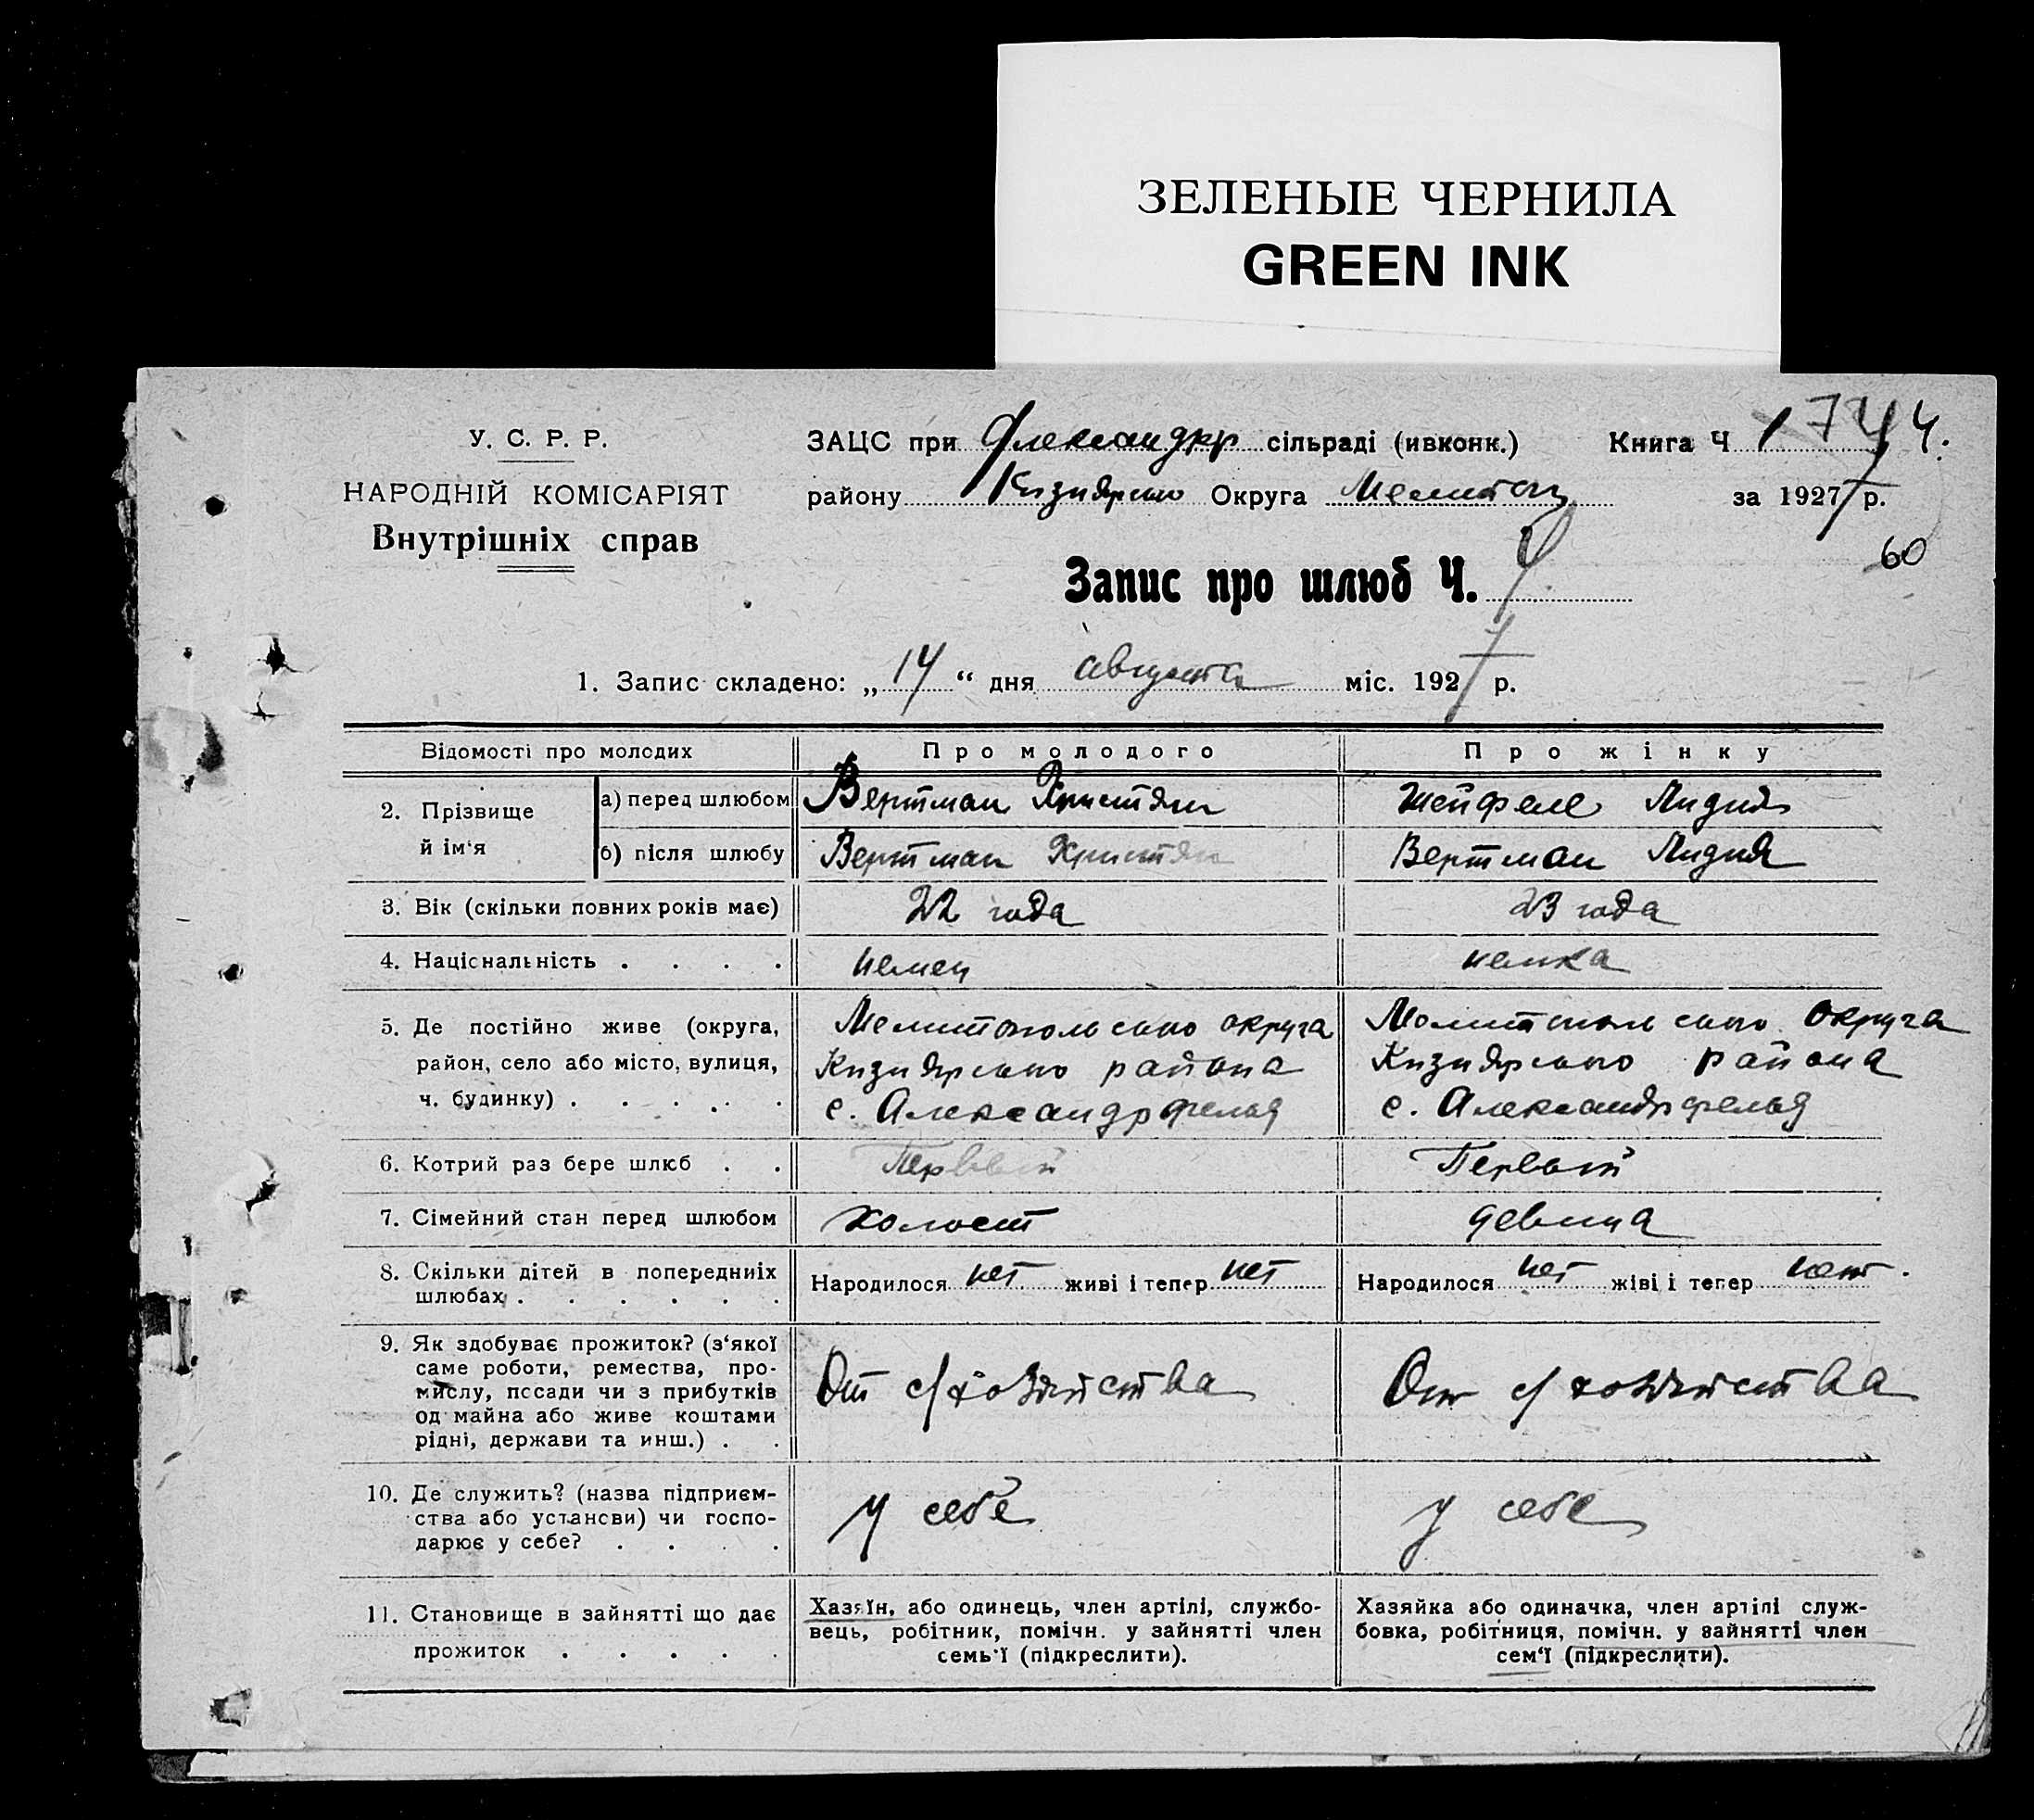 ЗЕЛЕНЫЕ ЧЕРНИЛА
GREEN INK
У. С. Р. Р.
НАРОДНІЙ КОМІСАРІЯТ
Внутрішніх справ
ЗАЦС при Александр сільраді (ивконк.) Книга Ч 1
району Кизиярско Округа Мелитоп за 1927 р.
60
Запис про шлюб Ч.
1. Запис складено: „14“ дня августа міс. 1927 р.
Відомості про молодих Про молодого Про жінку
2. Прізвище й ім‘я
а) перед шлюбом Вертман Христян Шейфеле Лидия
б) після шлюбу Вертман Христян Вертман Лидия
3. Вік (скільки повних років має) 22 года 23 года
4. Національність . . . . немец немка
5. Де постійно живе (округа, Мелитопольского округа Мелитопольского округа
район, село або місто, вулиця, Кизиярского района Кизиярского района
ч. будинку) . . . . . с. Александрфельд с. Александрфельд
6. Котрий раз бере шлюб . . Первый Первый
7. Сімейний стан перед шлюбом холост девица
8. Скільки дітей в попередниіх Народилося нет живі і тепер нет Народилося нет жіві і тепер нет.
шлюбах . . . . . .
9. Як здобуває прожиток? (з‘якої
саме роботи, ремества, про-
мислу, посади чи з прибутків От с/хозяйства От с/хозяйства
од майна або живе коштами
рідні, держави та инш.) . .
10. Де служить? (назва підприєм-
ства або установи) чи госпо- у себе у себе
дарює у себе? . . . .
11. Становище в зайнятті що дає
прожиток . . . . .
Хазяїн, або одинець, член артілі, службо-
вець, робітник, помічн. у зайнятті член
семь‘ї (підкреслити).
Хазяйка або одиначка, член артілі служ-
бовка, робітниця, помічн. у зайнятті член
сем‘ї (підкреслити).